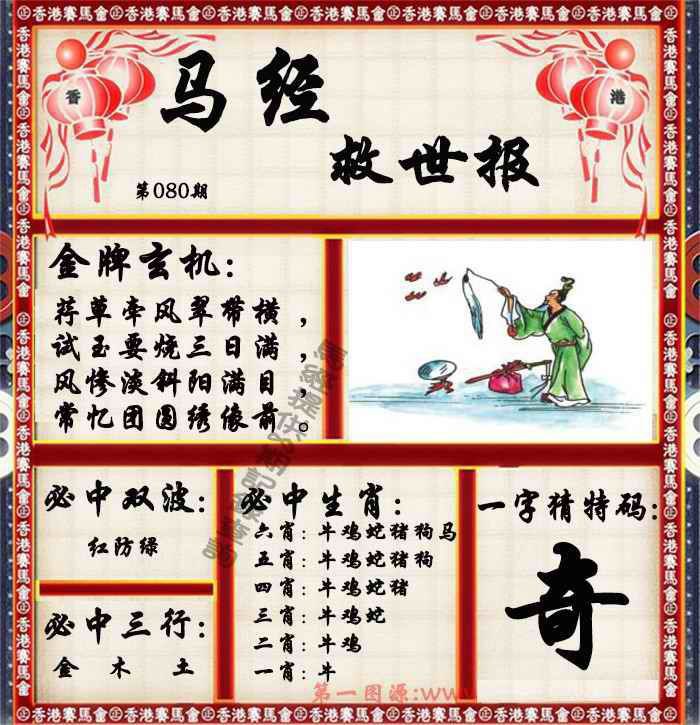 香港賽馬會
香
港
马经
救世报
第080期
金牌玄机:
荇草牵风翠带横，
试玉要烧三日满，
风惨淡斜阳满目，
常忆团圆绣像前。
必中双波:
红防绿
必中三行:
金 木 土
必中生肖:
六肖: 牛鸡蛇猪狗马
五肖: 牛鸡蛇猪狗
四肖: 牛鸡蛇猪
三肖: 牛鸡蛇
二肖: 牛鸡
一肖: 牛
一字猜特码:
奇
第一图源:www